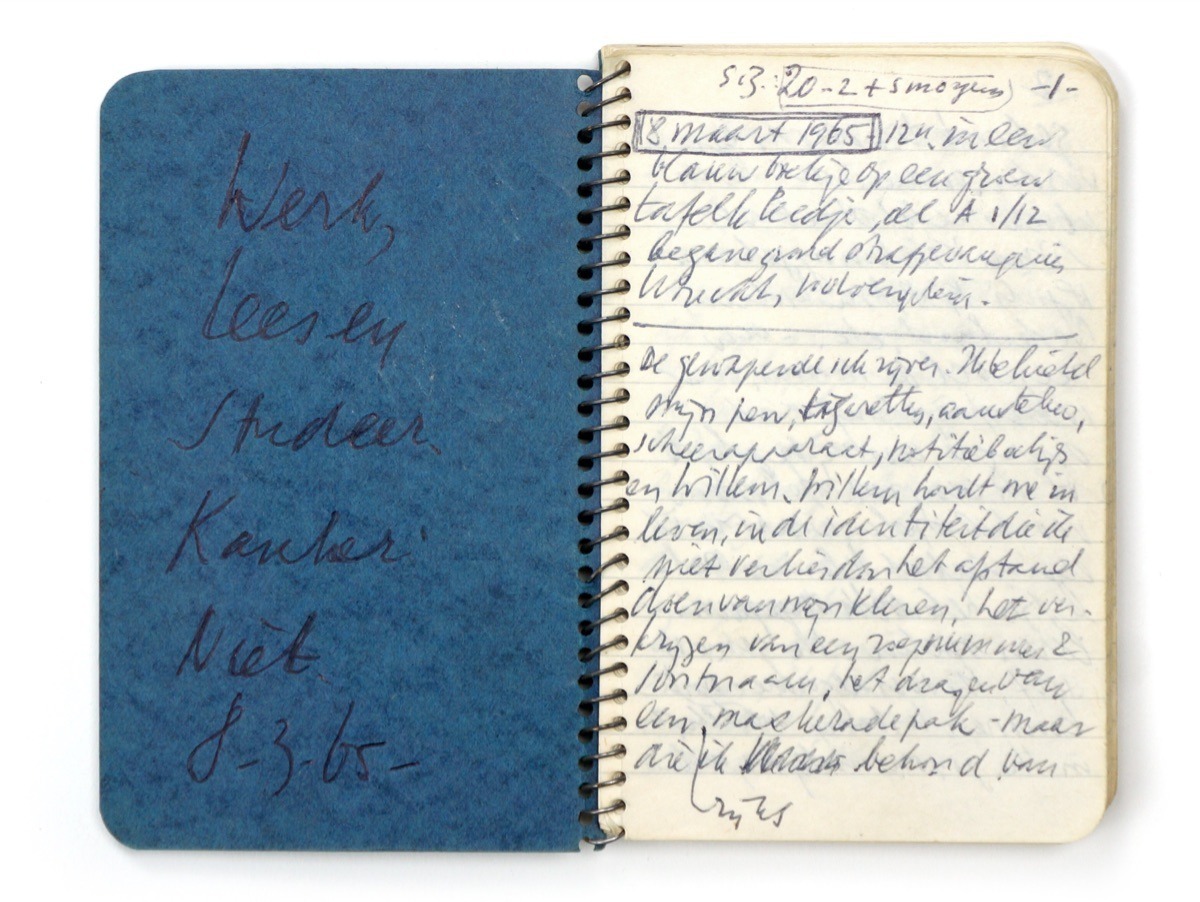 Werk,
Lees en
Studeer
Kanker
Niet
8-3-65-
S.B.: 20-2 + smorgens -1-
8 maart 1965 12u. in een
blauw boekje op een groen
tafelkleedje, cel A 1/12
begane grond strafgevangenis
Utrecht,
De gewapende schrijver. Ik behield
mijn pen, sigaretten, aansteker,
scheerapparaat, notitieboekjes
en Willem. Willem houdt me in
leven, in de identiteit die ik
niet verlies door het afstand
doen van mijn kleren, het ver-
krijgen van een roepnummer &
het dragen van
een maskeradepak - maar
die ik behoud van